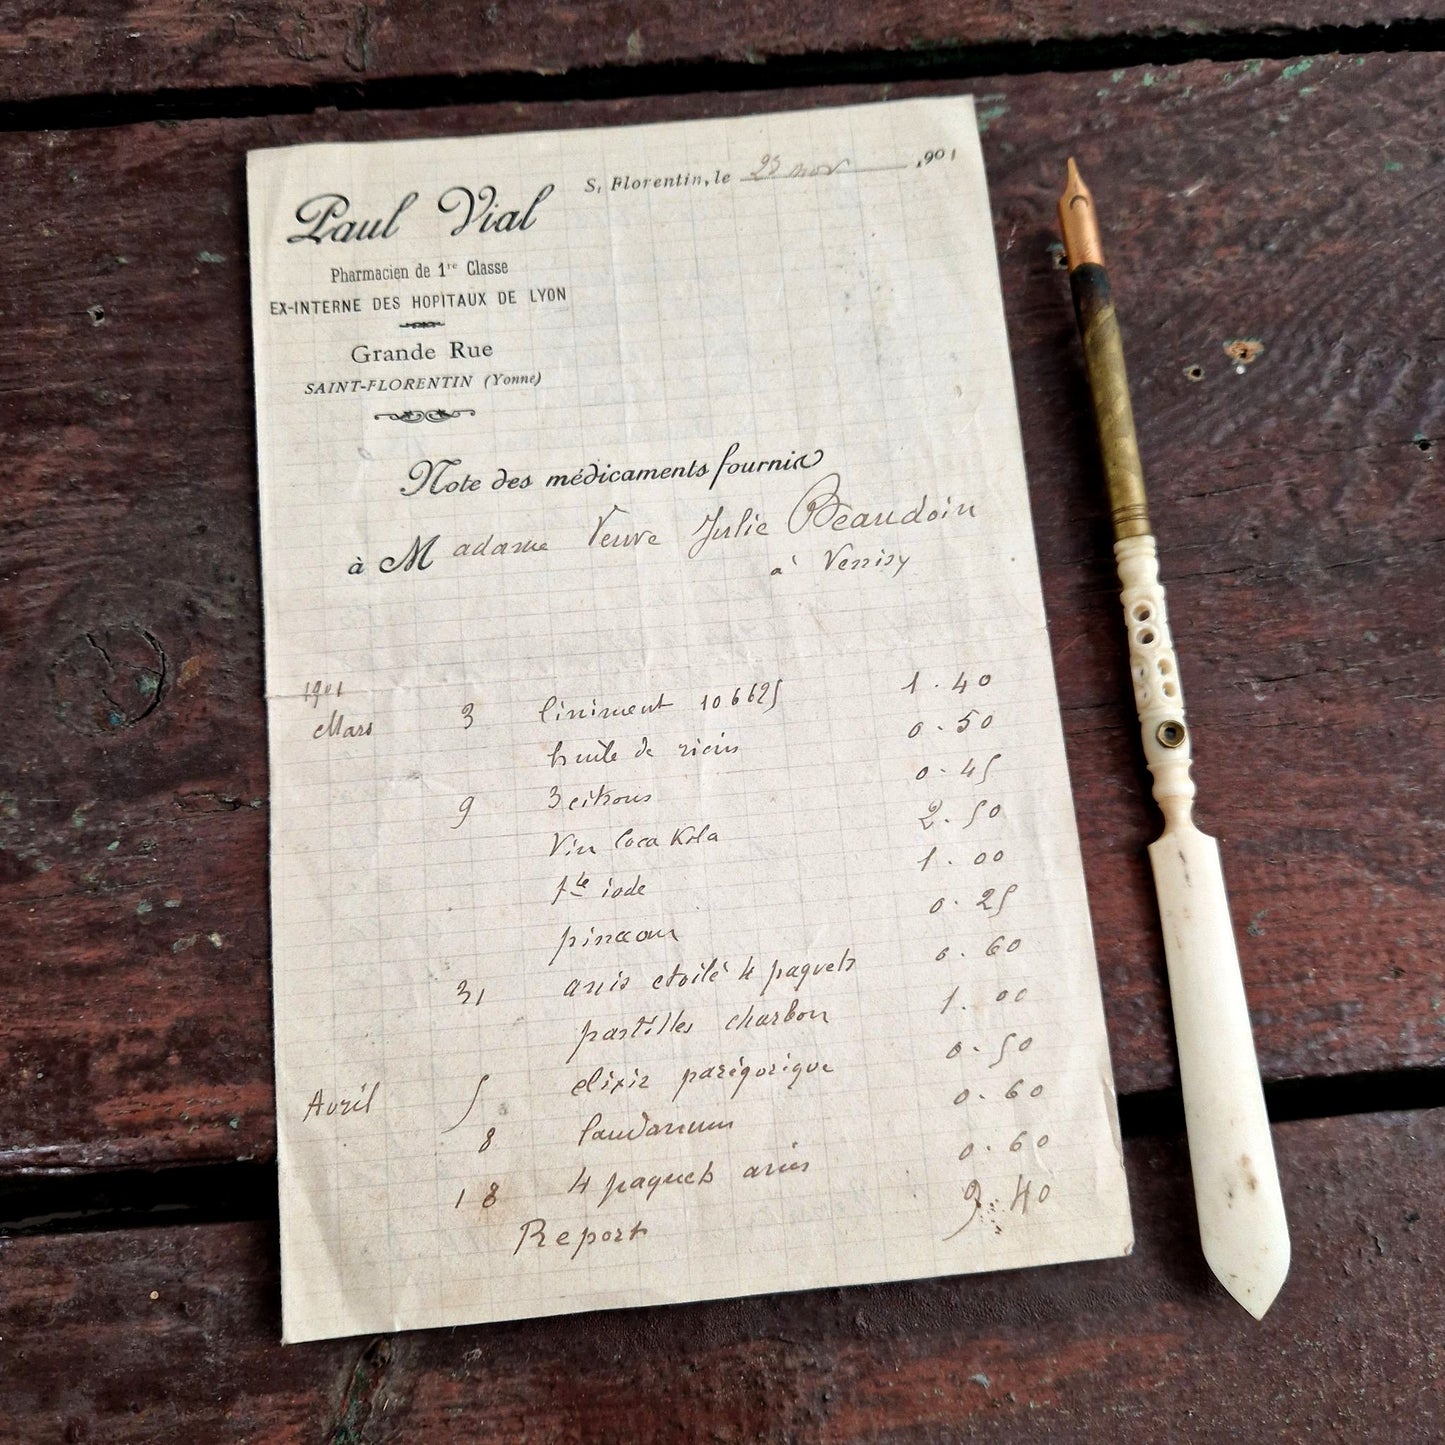 St Florentin, le 23 nov 1901
Paul Vial
Pharmacien de 1re Classe
EX-INTERNE DES HOPITAUX DE LYON
Grande Rue
SAINT-FLORENTIN (Yonne)
Note des médicaments fournis
à Madame Veuve Julie Beaudoin
à Venisy
1901
Mars 3 liniment 106625 1.40
huile de ricin 0.50
9 3 citrons 0.45
Vin Coca Kola 2.50
tre iode 1.00
pinceau 0.25
31 anis etoilé 4 paquets 0.60
pastilles charbon 1.00
Avril 5 elixir parégorique 0.50
8 laudanum 0.60
18 4 paquets anis 0.60
Report 9.40